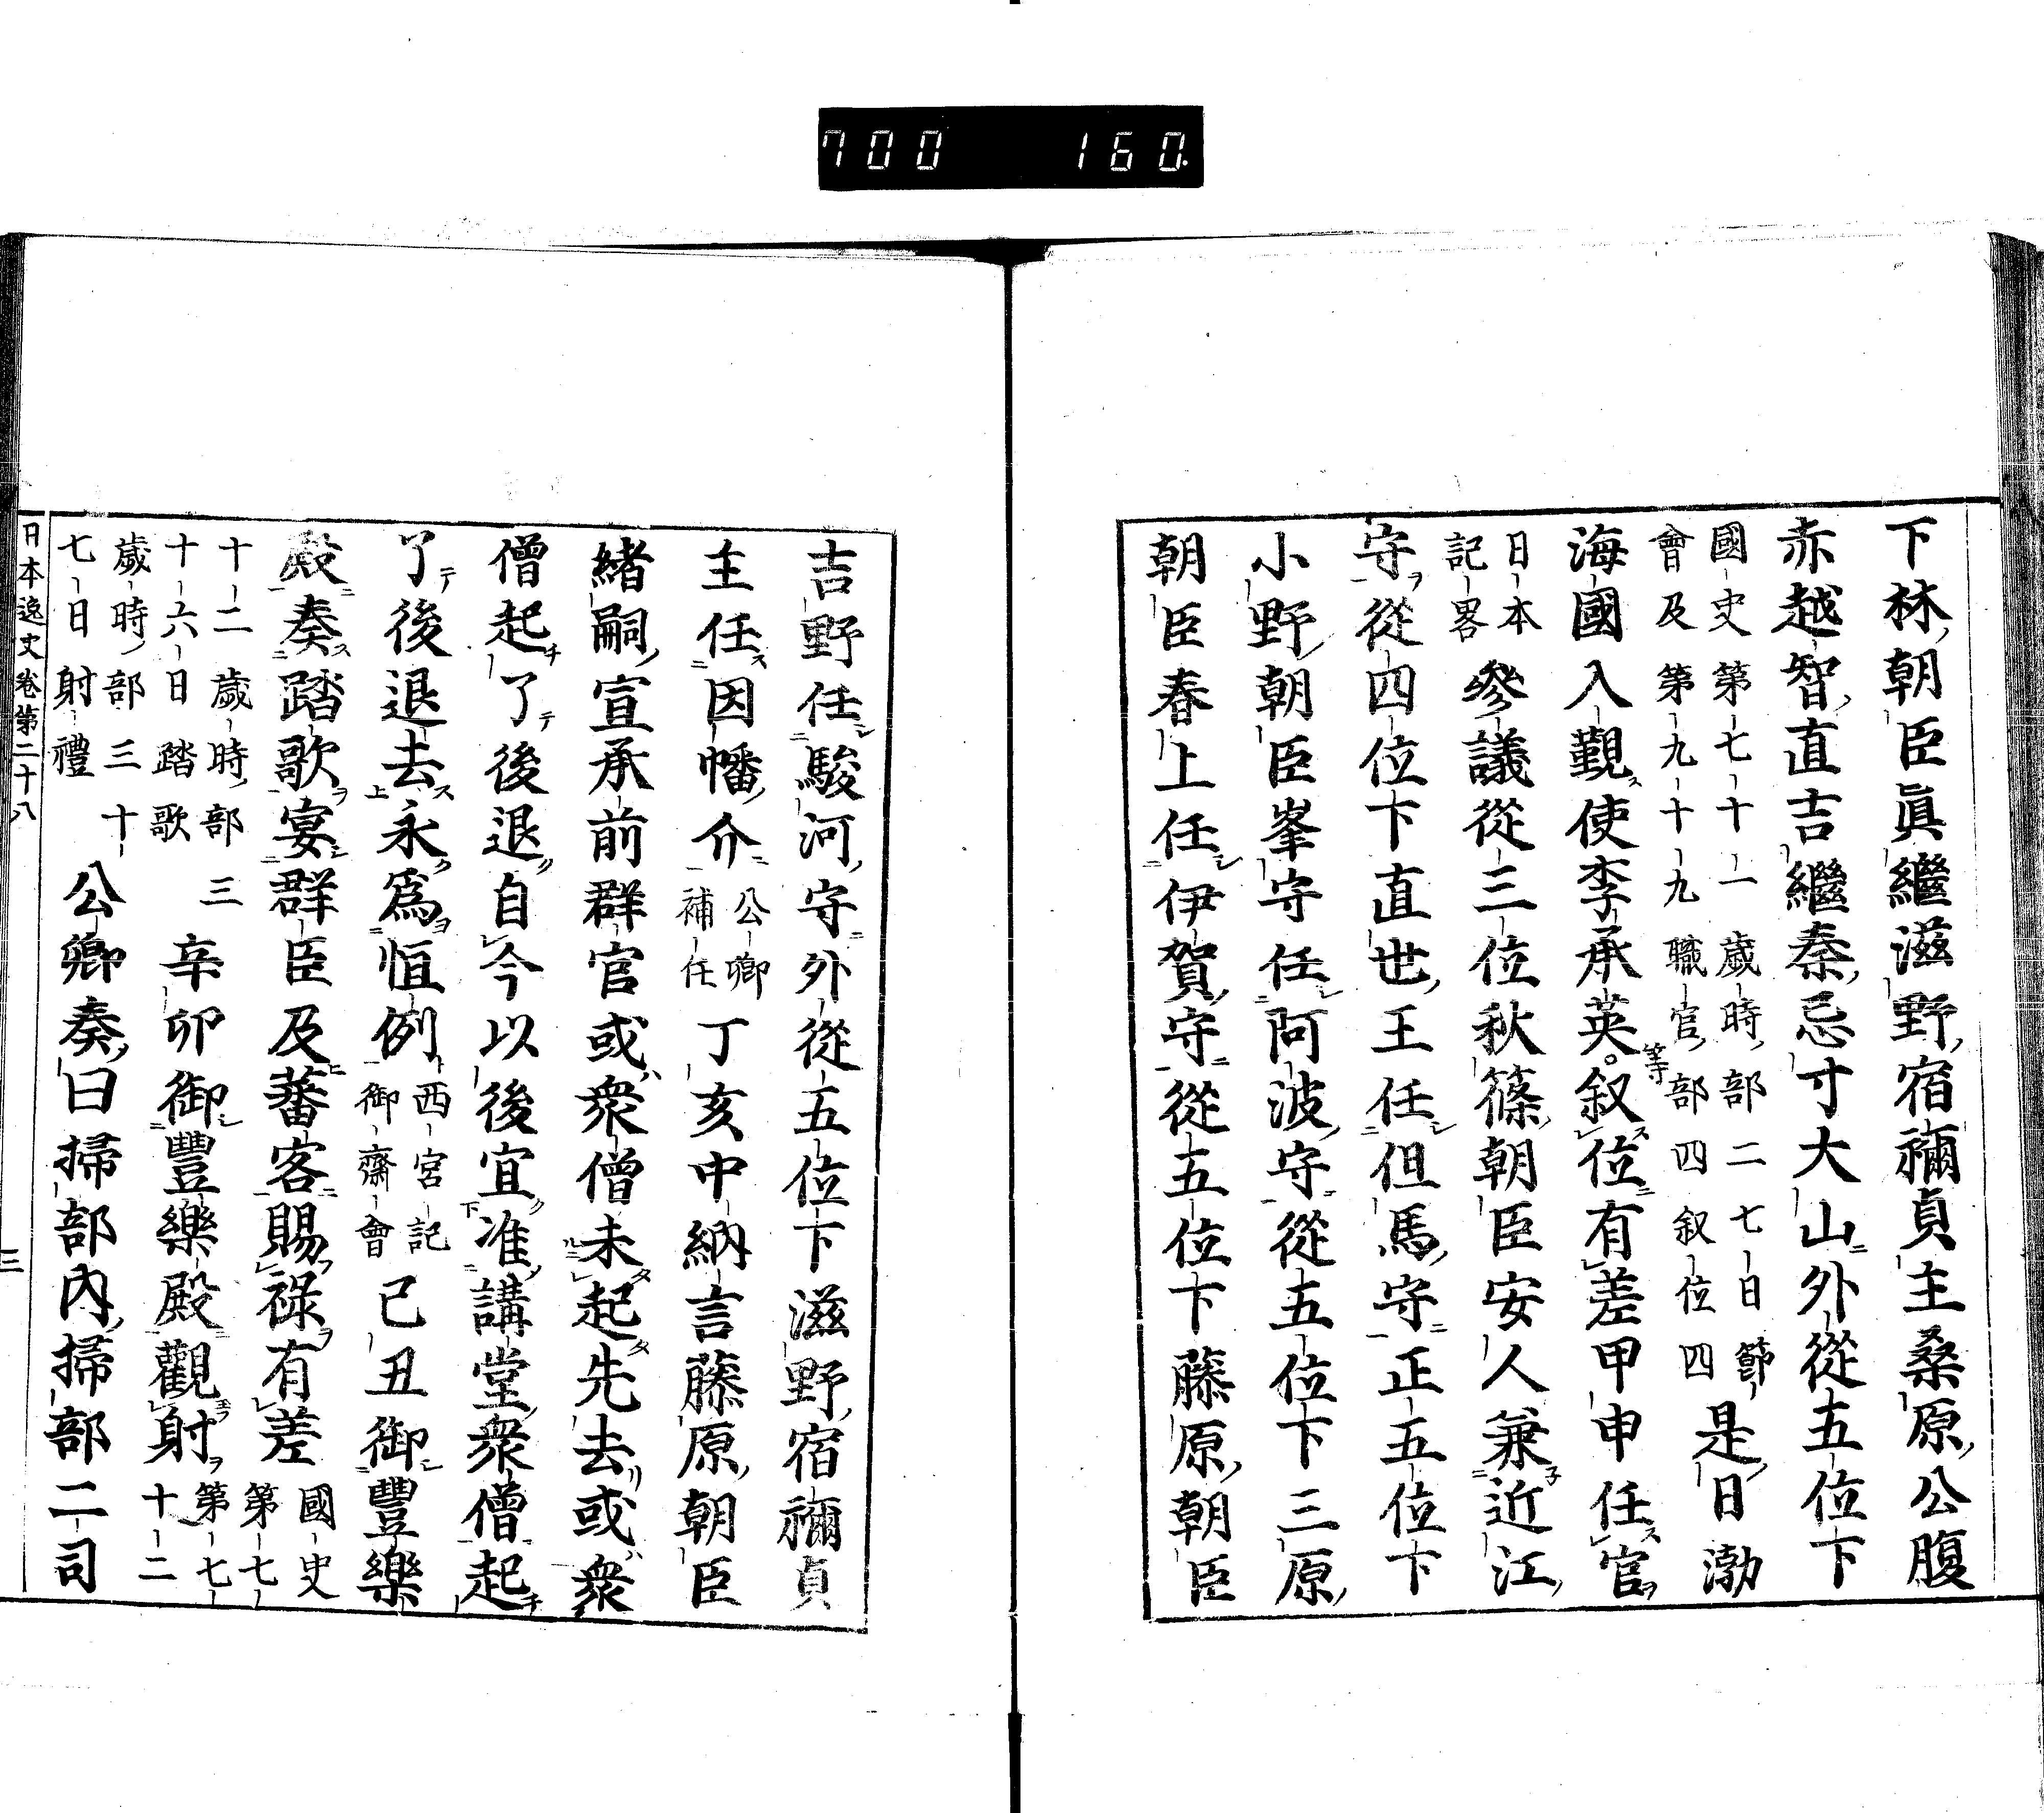 700 160
下林朝臣眞繼滋野宿禰貞主桑原公腹
赤越智直吉繼秦忌寸大山外從五位下
國史第七十一歲時部二七日節
會及第九十九職官部四叙位四
是日渤
海國入覲使李承英等叙位有差甲申任官
日本
記畧
參議從三位秋篠朝臣安人兼近江
守從四位下直世王任但馬守正五位下
小野朝臣峯守任阿波守從五位下三原
朝臣春上任伊賀守從五位下藤原朝臣
吉野任駿河守外從五位下滋野宿禰貞
主任因幡介
公卿
補任
丁亥中納言藤原朝臣
緒嗣宣承前群官或衆僧未起先去或衆
僧起了後退自今以後宜准講堂衆僧起
了後退去永爲恒例
西宮記
御齋會
己丑御豐樂
殿奏踏歌宴群臣及蕃客賜祿有差
國史
第七
十二歲時部三
十六日踏歌
辛卯御豐樂殿觀射
第七
十二
歲時部三十
七日射禮
公卿奏曰掃部內掃部二司
日本逸史卷第二十八
三